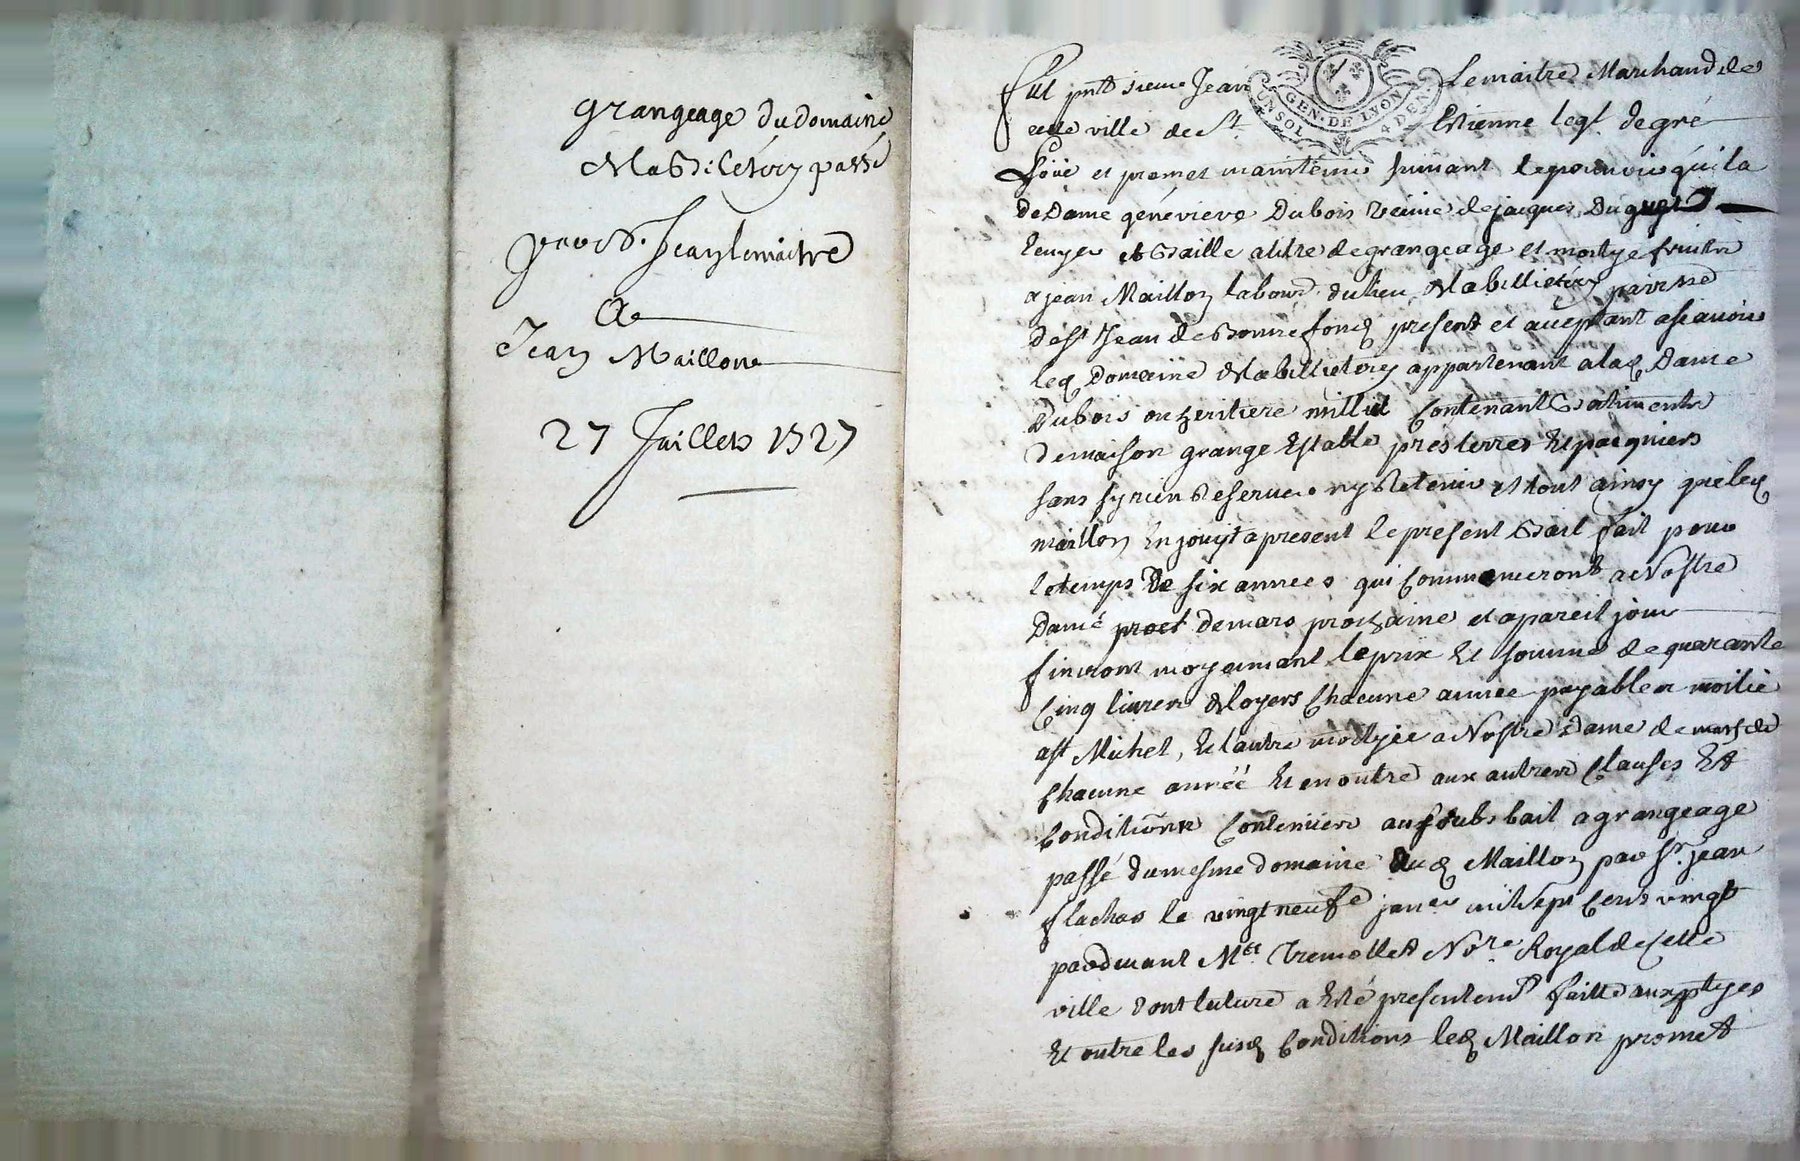 grangeage du domaine
passé
par S.r Jean lemaitre
A
Jean Maillon
27 Juillets 1727
GEN. DE LYON
UN SOL 4 DEN.
fut pnt sieur Jean Lemaitre Marchand de
cette ville de St Estienne leql de gré
Loüe et promet maintenir suivant le pouvoir qu'il a
de Dame géneviéve Dubois veuve de jacques Duguet
Ecuyer et Baille a titre de grangeage et
a jean Maillon labour. du lieu parroisse
de St Jean de Bonnefond present et acceptant asçavoir
led Domaine appartenant a lad Dame
Dubois ou heritiere millet Contenant Batiments
de maison grange Estable prés terres Et paquiers
sans sy rien Reserver ny Retenir et tout ainsy que led
maillon En jouyt a present le present Bail fait pour
le temps De six années qui Commenceront a Nostre
Dame de mars prochaine et a pareil jour
finiront moyennant le prix Et somme de quarante
Cinq livres Chacune année payable moitié
a St Michel, Et l'autre moityée a Nostre Dame de mars de
Chacune année Et en outre aux autres Clauses Et
Conditions Contenües au soubs bail a grangeage
passé du mesme domaine aud Maillon par Sr. jean
flachas le vingt neufe janer mil sept Cent vingt
pardevant Mer Tremollet No.re Royal de Cette
ville dont lature a Eté presentemt faitte aux ptyes
Et outre les susd Conditions led Maillon promet